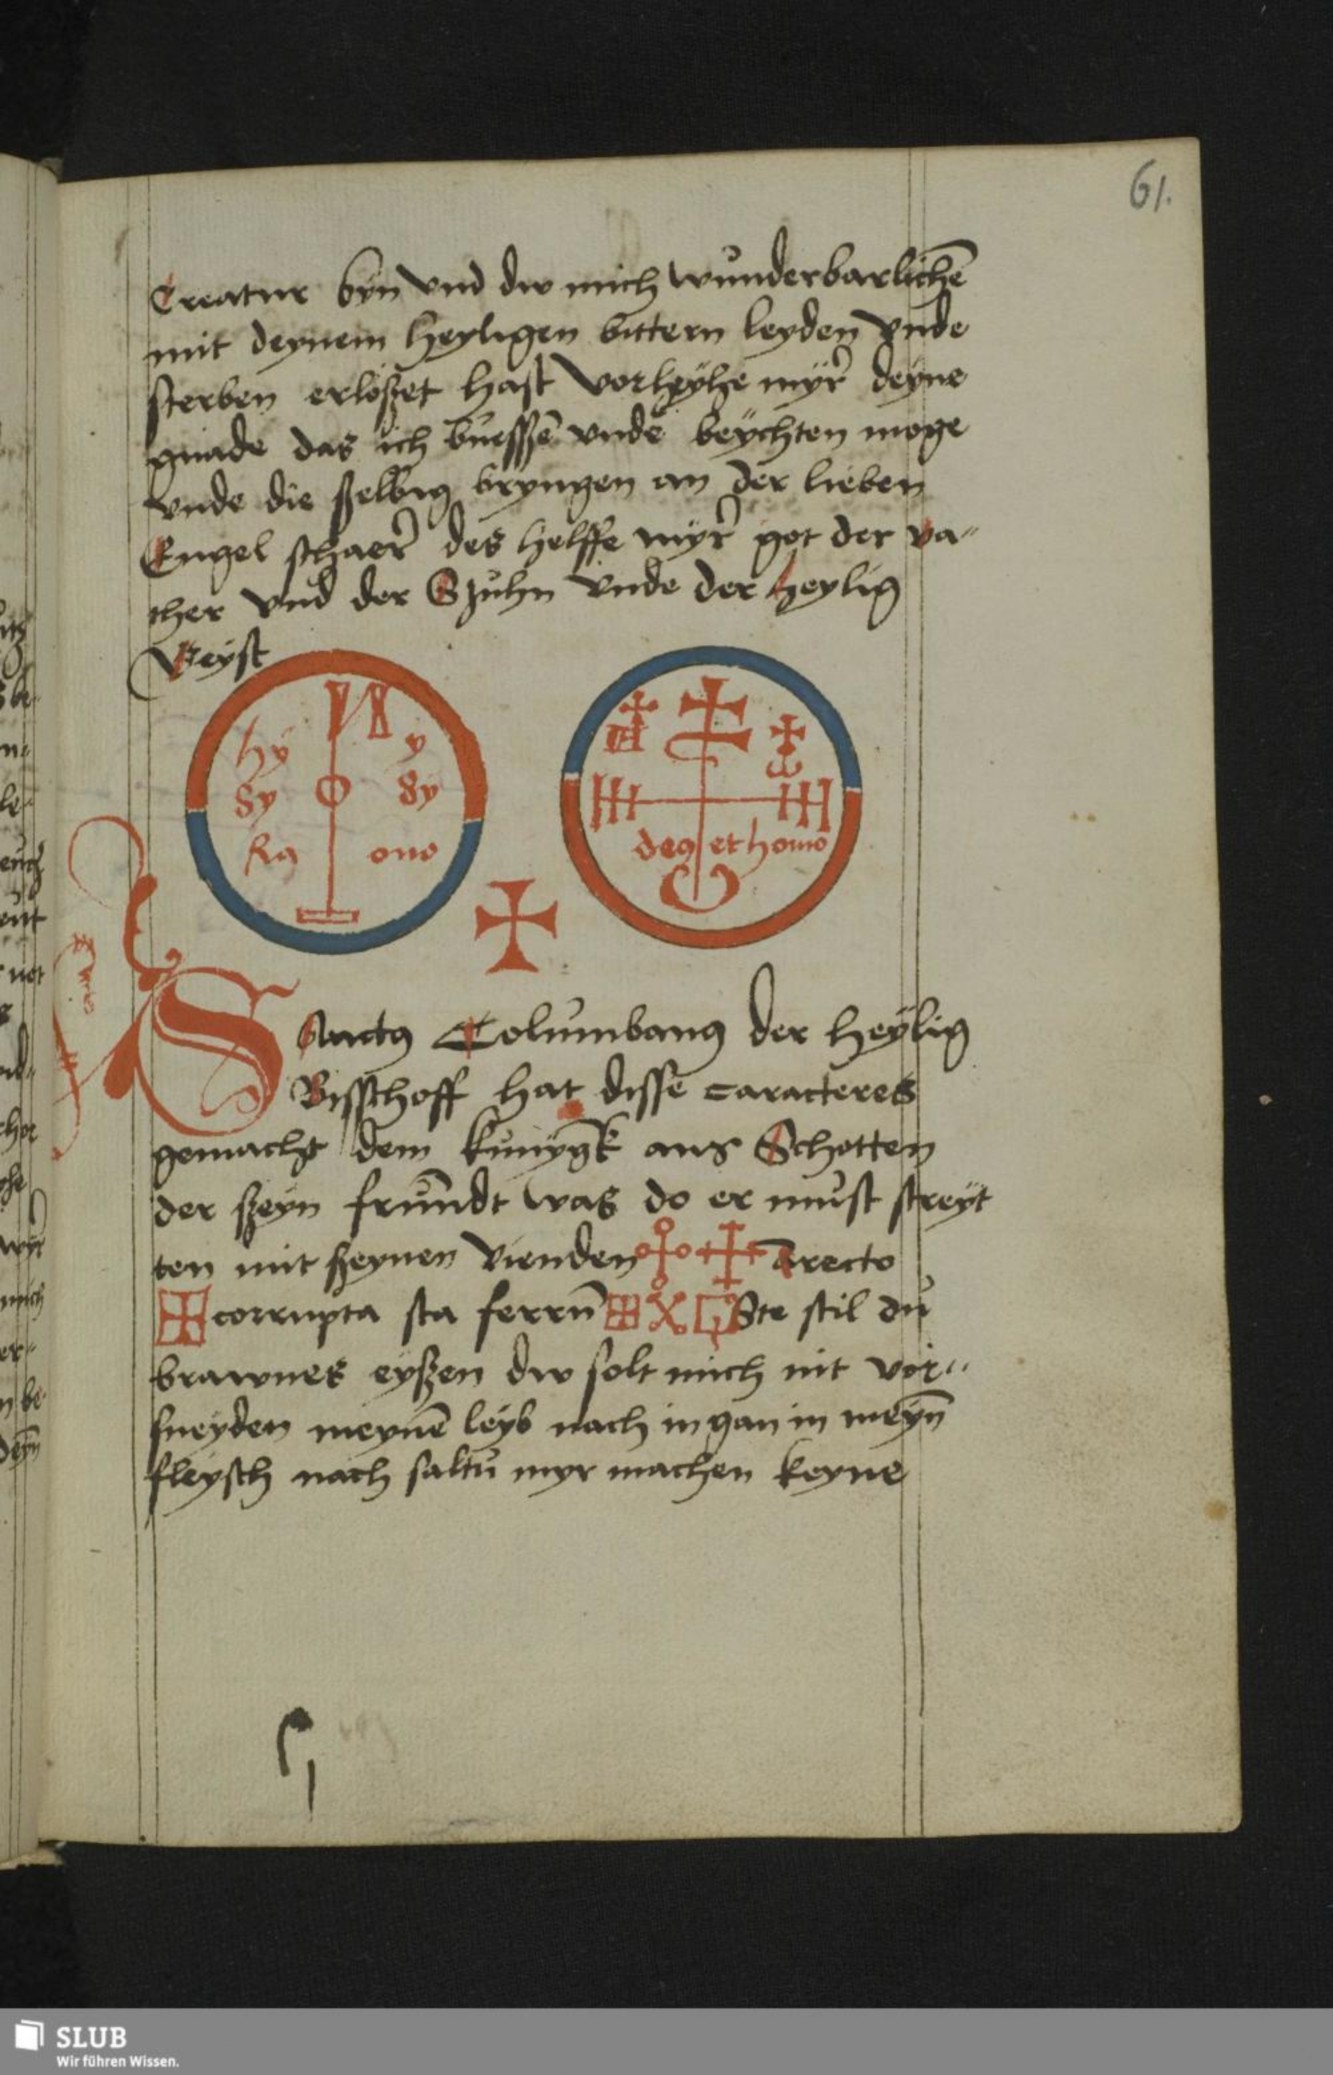 61.
Creatur byn vnd dw mich wunderbarlichē
mit deynem heyligen bittern leyden vnde
sterben erloßet hast vorleyhe myr deyne
gnade das ich buessē vnde beychten moge
vnde die selbig bryngen an der lieben
Engel schaer des helffe myr got der va-
ther vnd der Szuhn vnde der heylig
Geyst
hy y
dy dy
Ra ono
deꝯ et homo
Sanctꝯ Columbanꝯ der heylig
Bisschoff hat disse caracteres
gemacht dem kunygk aus Schotten
der szeyn frundt was do er must streyt
ten mit ßeynen vienden Arecto
corrupta sta ferrū Ste stil du
brawnes eyßen dw solt mich nit vor-
sneyden meynē leyb nach in gan in meyn̄
fleysch nach saltu myr machen keyne
SLUB
Wir führen Wissen.